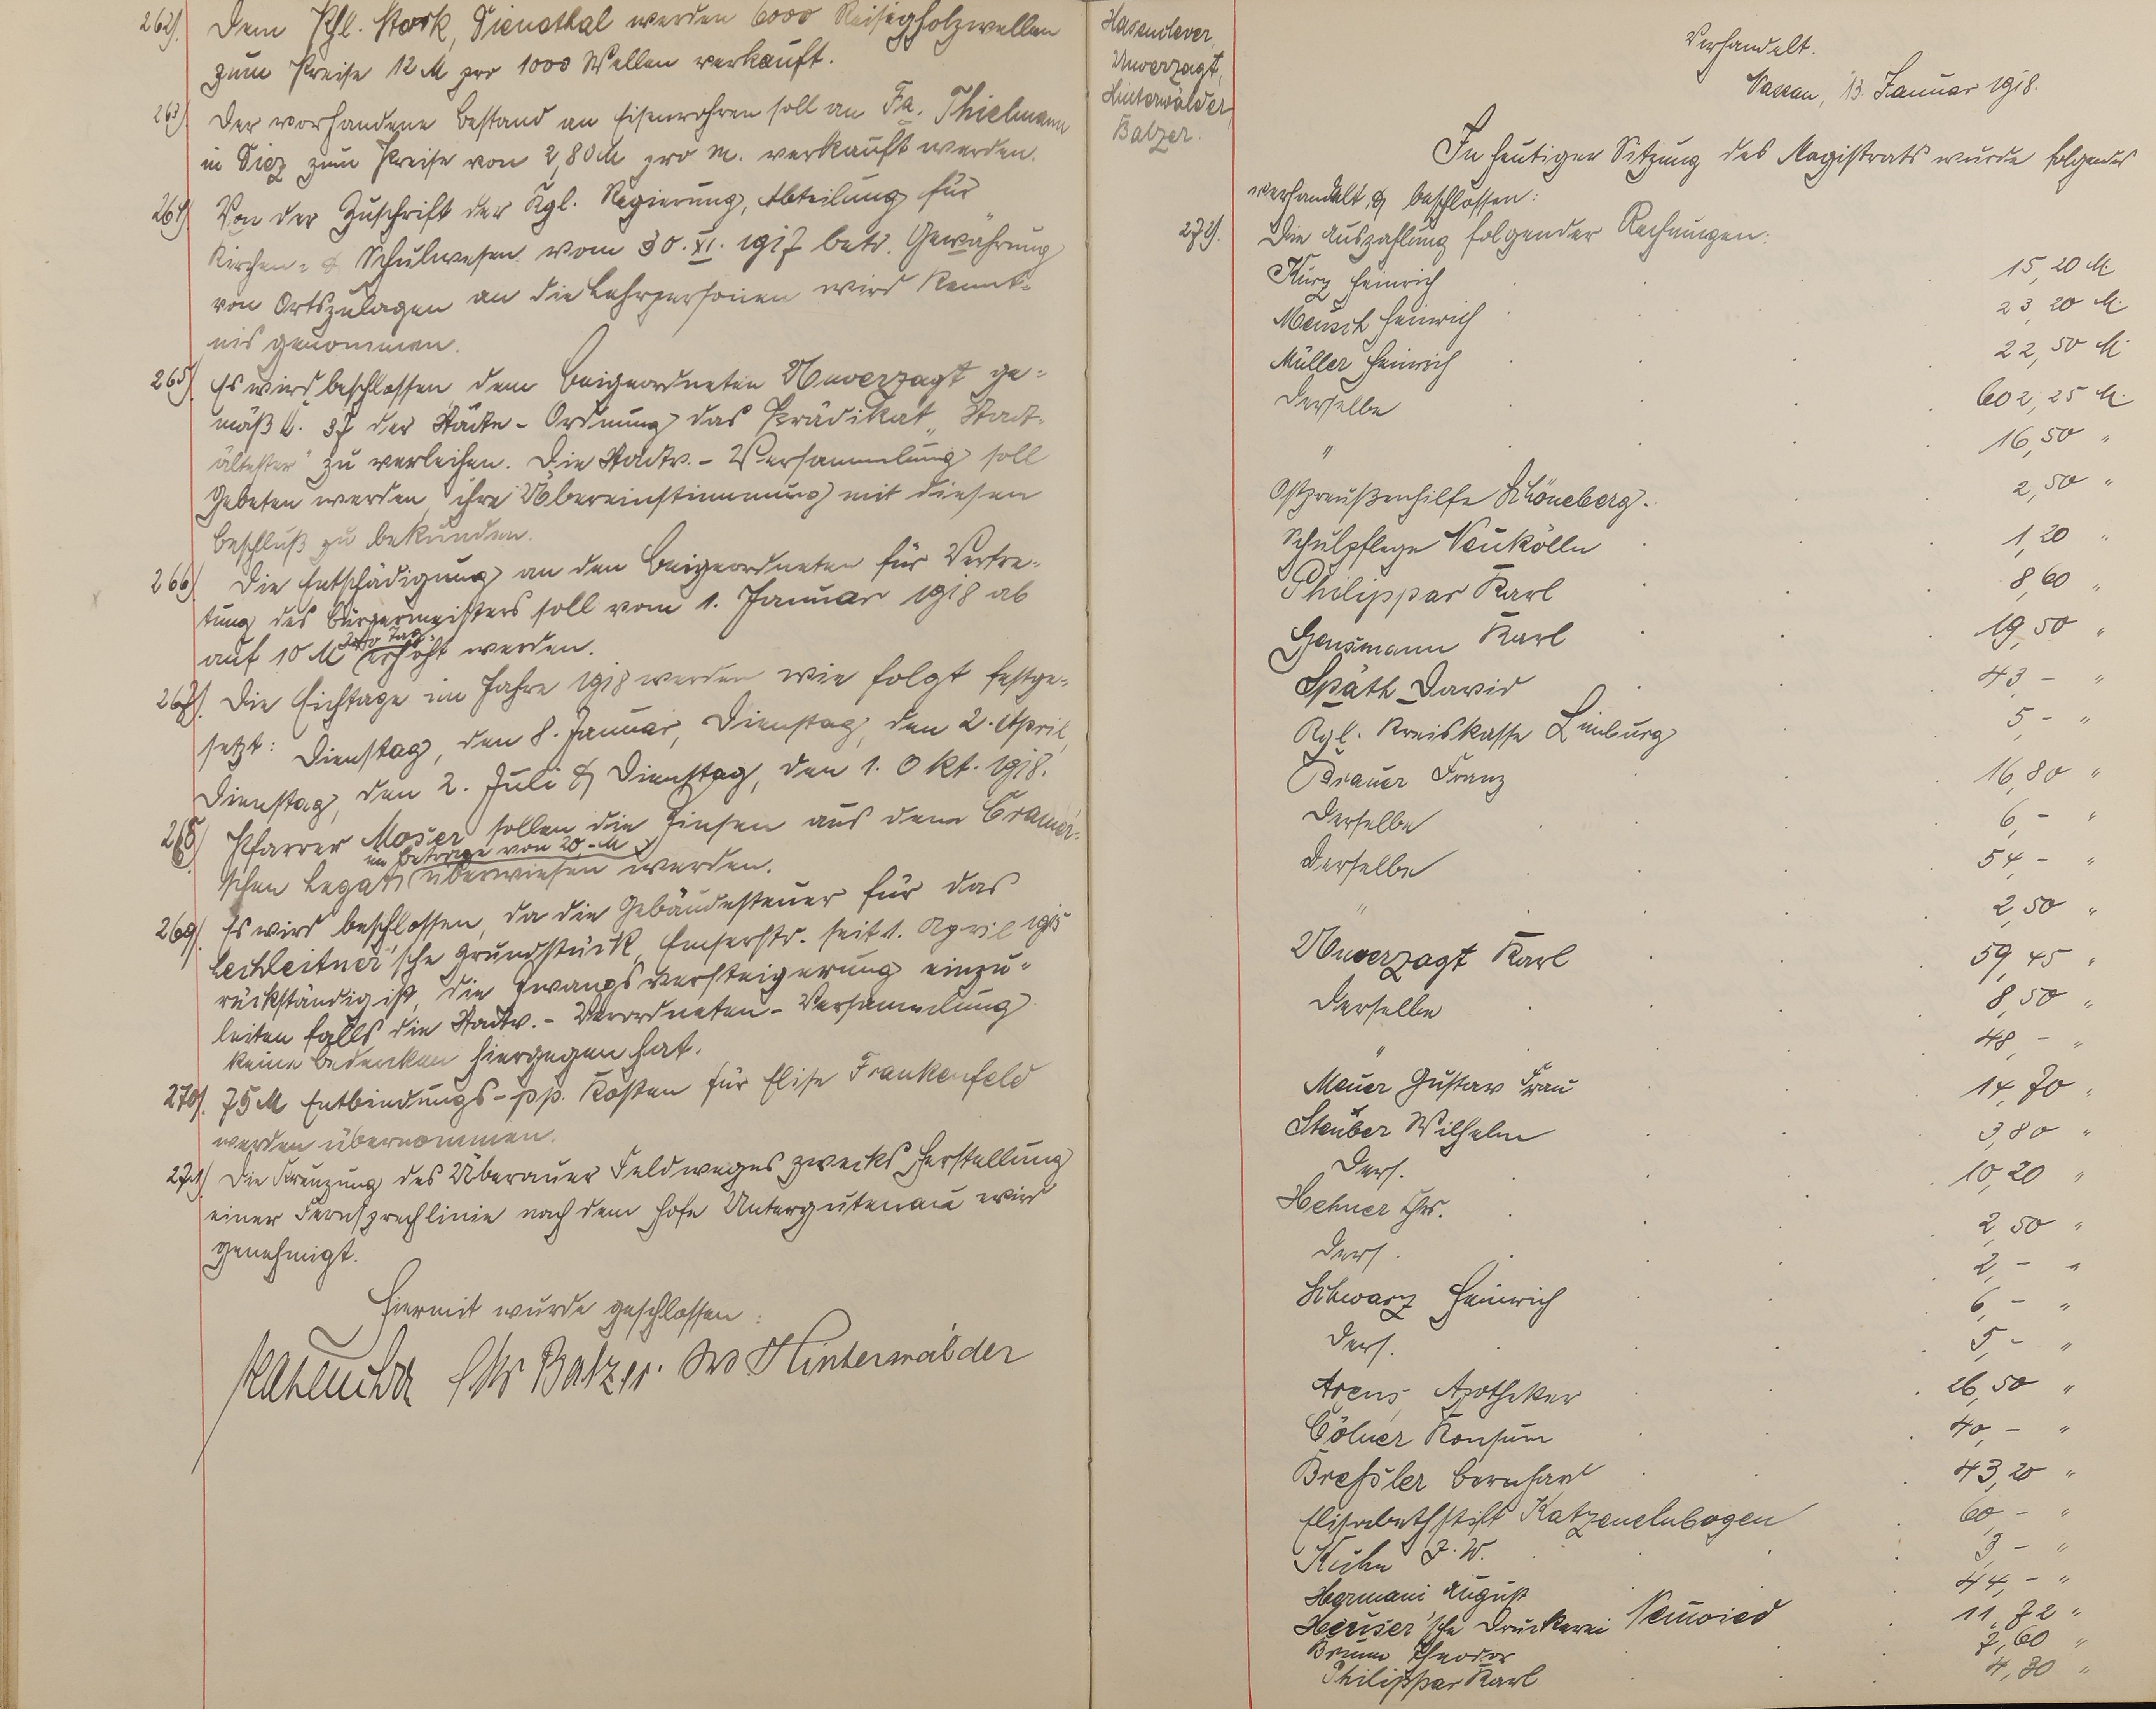 262). Dem Phl. Stork, Dienethal werden 6000 Reisigholzwellen
zum Preise 12 M pro 1000 Wellen verkauft.
263) Der vorhandene Bestand an Eisenrohren soll an Fa. Thielmann
in Diez zum Preise von 2,80 M pro m. verkauft werden.
264) Von der Zuschrift der Kgl. Regierung, Abteilung für
Kirchen- & Schulwesen vom 30. XI. 1917 betr. Gewährung
von Ortszulagen an die Lehrpersonen wird Kennt-
nis genommen.
265) Es wird beschlossen, dem Beigeordneten Unverzagt ge-
mäß §. 37 der Städte-Ordnung das Prädikat „Stadt-
ältester" zu verleihen. Die Stadtv.-Versammlung soll
gebeten werden, ihre Übereinstimmung mit diesen
Beschluß zu bekunden.
266) Die Entschädigung an den Beigeordneten für Vertre-
tung des Bürgermeisters soll vom 1. Januar 1918 ab
auf 10 M pro Tag erhöht werden.
267). Die Eichtage im Jahre 1918 werden wie folgt festge-
setzt: Dienstag, den 8. Januar, Dienstag, den 2. April,
Dienstag, den 2. Juli & Dienstag, den 1. Okt. 1918.
268) Pfarrer Moser sollen die Zinsen aus dem Cramer-
schen Legat im Betrage von 20,- M überwiesen werden.
269). Es wird beschlossen, da die Gebäudesteuer für das
Lechleitner'sche Grundstück, Emserstr. seit 1. April 1915
rückständig ist, die Zwangsversteigerung einzu-
leiten falls die Stadtv.-Verordneten-Versammlung
keine Bedenken hiergegen hat.
270). 75 M Entbindungs-pp. Kosten für Elise Frankenfeld
werden übernommen.
271). Die Kreuzung des Überauer Feldweges zwecks Herstellung
einer Fernsprechlinie nach dem Hofe Untergutenau wird
genehmigt.
Hiermit wurde geschlossen:
Hasenclever Chr Balzer. Hinterwälder
Hasenclever,
Unverzagt,
Hinterwälder,
Balzer.
Verhandelt.
Nassau, 13. Januar 1918.
In heutiger Sitzung des Magistrats wurde folgendes
verhandelt & beschlossen:
272). Die Auszahlung folgender Rechnungen:
Kurz Heinrich 15,20 M
Mensch Heinrich 23,20 M
Müller Heinrich 22,50 M
Derselbe 602,25 M
" 16,50 "
Ostpreußenhilfe Schöneberg. 2,50 "
Schulpflege Neukölln 1,20 "
Philippar Karl 8,60 "
Gensmann Karl 19,50 "
Späth David 43,- "
Kgl. Kreiskasse Limburg 5,- "
Brauer Franz 16,80 "
Derselbe 6,- "
Derselbe 54,- "
" 2,50 "
Unverzagt Karl 59,45 "
Derselbe 8,50 "
" 48,- "
Meuer Gustav Frau 14,70 "
Steuber Wilhelm 3,80 "
Ders. 10,20 "
Hehner Chr. 2,50 "
Ders. 2,- "
Schwarz Heinrich 6,- "
Ders. 5,- "
Arens, Apotheker 26,50 "
Cölner Konsum 40,- "
Breßler Bernhard 43,20 "
Elisabethstift Katzenelnbogen 60,- "
Kuhn J. W. 3,- "
Hermani August 44,- "
Heuser'sche Druckerei Neuwied 11,72 "
Brum Theodor 7,60 "
Philippar Karl 4,30 "